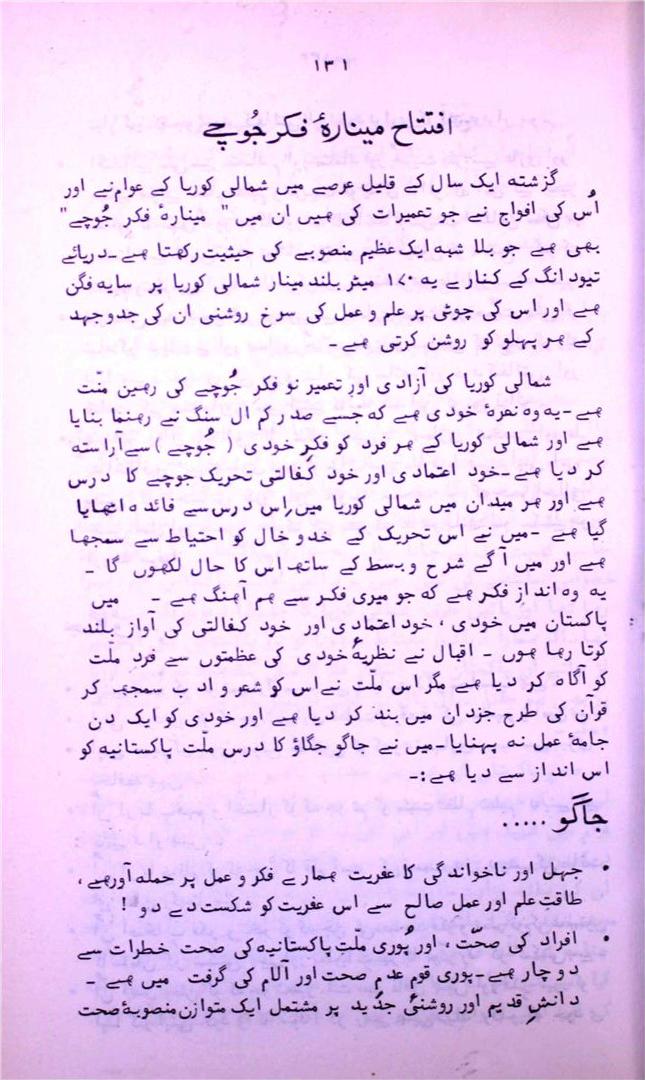 ۱۳۱
افتتاح مینارہٴ فکر جُوچے
گزشتہ ایک سال کے قلیل عرصے میں شمالی کوریا کے عوام نے اور
اُس کی افواج نے جو تعمیرات کی ھیں ان میں " مینارہٴ فکرِ جُوچے"
بھی ھے جو بلا شبہ ایک عظیم منصوبے کی حیثیت رکھتا ھے۔ دریائے
تیودانگ کے کنارے یہ ۱۷۰ میٹر بلند مینار شمالی کوریا پر سایہ فگن
ھے اور اس کی چوٹی پر علم و عمل کی سرخ روشنی ان کی جدوجہد
کے ھر پہلو کو روشن کرتی ھے۔
شمالی کوریا کی آزادی اور تعمیر نو فکر جُوچے کی رھین منت
ھے۔ یہ وہ نعرۂ خودی ھے کہ جسے صدر کم ال سنگ نے رھنما بنایا
ھے اور شمالی کوریا کے ھر فرد کو فکرِ خودی ( جُوچے ) سے آراستہ
کر دیا ھے۔ خود اعتمادی اور خود کفالتی تحریک جوچے کا درس
ھے اور ھر میدان میں شمالی کوریا میں اِس درس سے فائدہ اٹھایا
گیا ھے ۔ میں نے اس تحریک کے خدوخال کو احتیاط سے سمجھا
ھے اور میں آگے شرح و بسط کے ساتھ اس کا حال لکھوں گا ۔
یہ وہ انداز فکر ھے کہ جو میری فکر سے ھم آھنگ ھے ۔ میں
پاکستان میں خودی ، خود اعتمادی اور خود کفالتی کی آواز بلند
کرتا رھا ھوں ۔ اقبال نے نظریۂ خودی کی عظمتوں سے فردِ ملّت
کو آگاہ کر دیا ھے مگر اس ملّت نے اس کو شعر و ادب سمجھ کر
قرآن کی طرح جزدان میں بند کر دیا ھے اور خودی کو ایک دن
جامۂ عمل نہ پہنایا۔ میں نے جاگو جگاؤ کا درس ملّت پاکستانیہ کو
اس انداز سے دیا ھے :۔
جاگو .....
• جہل اور ناخواندگی کا عفریت ھمارے فکر و عمل پر حملہ آور ھے ،
طاقت علم اور عمل صالح سے اس عفریت کو شکست دے دو !
• افراد کی صحّت ، اور پُوری ملّتِ پاکستانیہ کی صحت خطرات سے
دوچار ھے۔ پوری قوم عدم صحت اور آلام کی گرفت میں ھے ۔
دانشِ قدیم اور روشنئ جدید پر مشتمل ایک متوازن منصوبۂ صحت